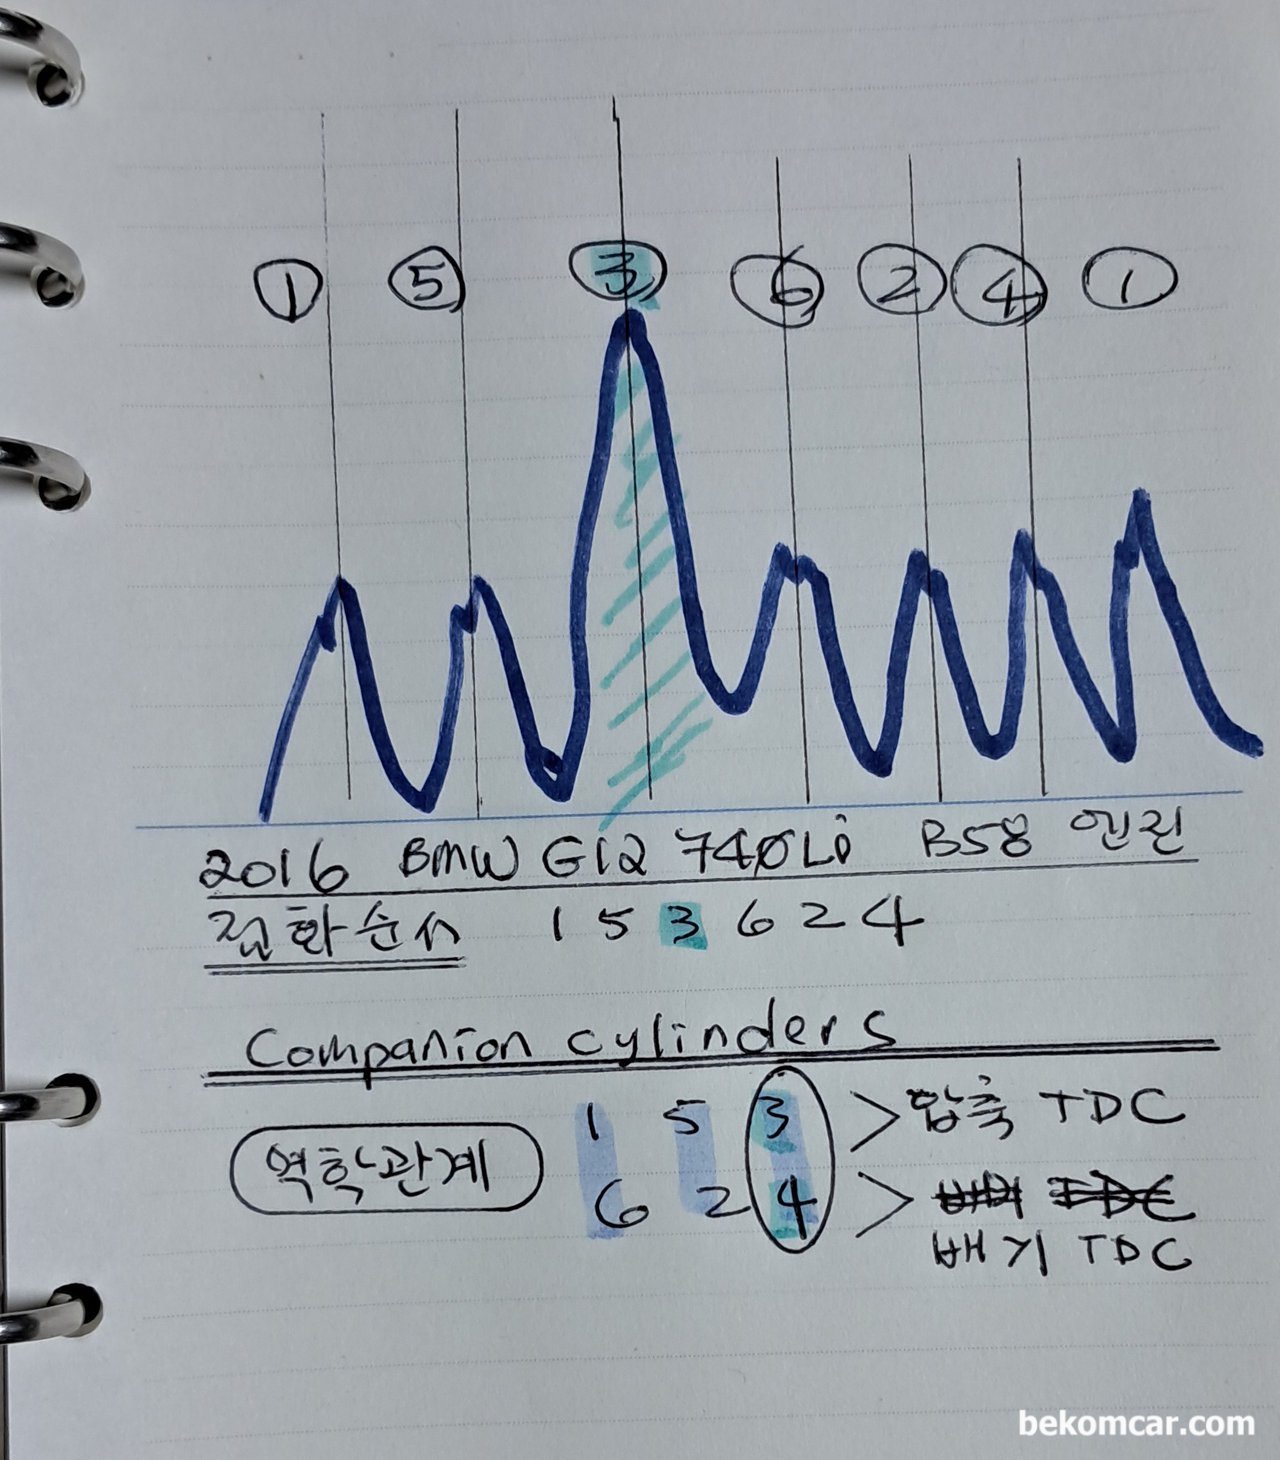 1 5 3 6 2 4 1
2016 BMW G12 740Li B58 엔진
점화순서 1 5 3 6 2 4
Companion cylinders
1 5 3 > 압축 TDC
역학관계
6 2 4 >
배기 TDC
bekomcar.com